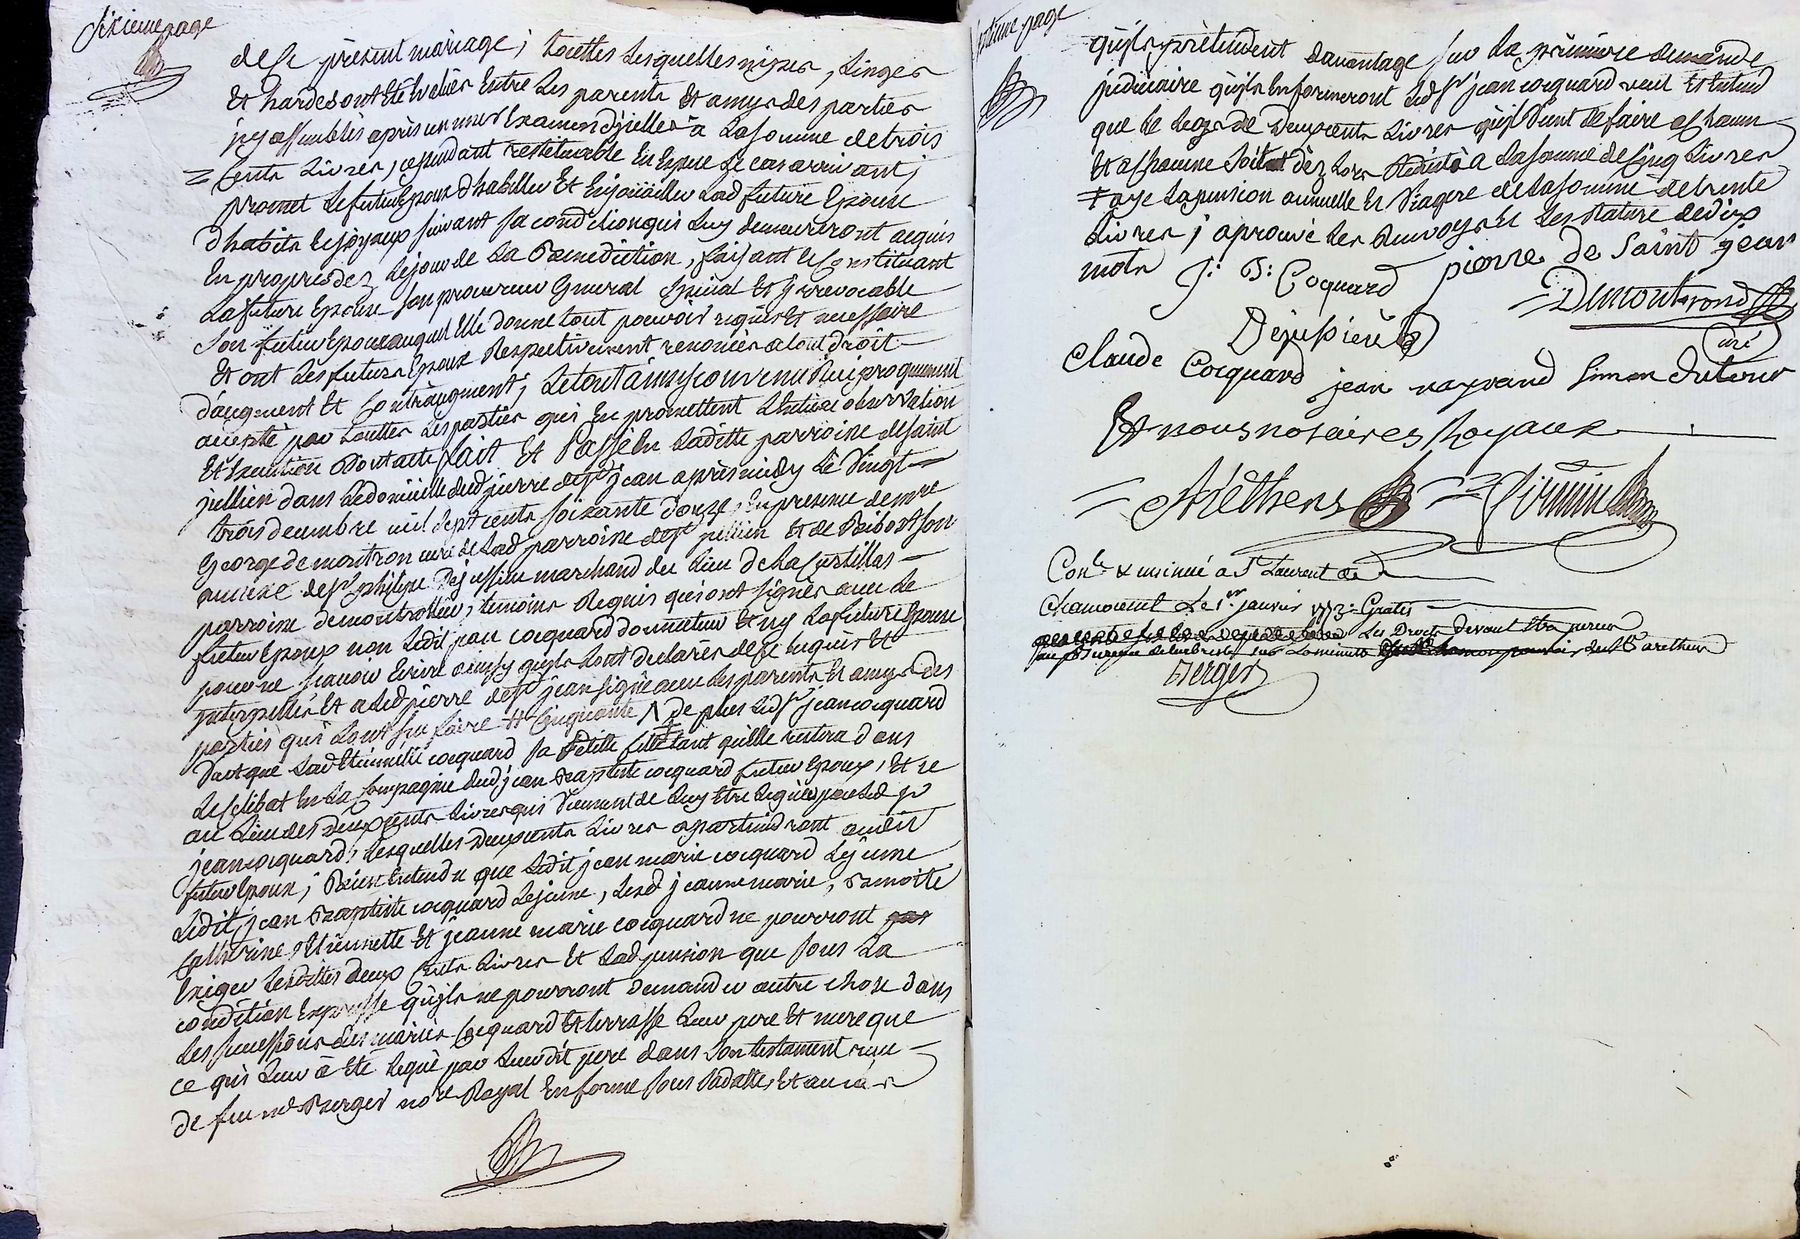 Sixieme page
de ce présent mariage; touttes lesquelles nipes, linges
et hardes ont été evalués entre les parents et amys des parties
icy assemblés après un mur examen d'jcelles a la somme de trois
cents livres, cependant restituable en espece le cas arrivant;
promet le futur Epoux d'habiller et enjoüailler lad future Epouse
d'habits et joyaux suivant sa condition qui luy demeureront acquis
en propres dez le jour de la Benediction, faisant et constituant
la future Epouse son procureur general special et jrrevocable
son futur Epoux auquel elle donne tout pouvoir requis et necessaire
et ont les futurs Epoux Respectivement renoncés a tout droit
d'augment et contraugment; le tout ainsy convenu Reciproquement
accepté par touttes les parties qui en promettent l'entiere observation
et execution Dont acte fait et Passé en laditte parroisse de saint
jullien dans le domicille dud pierre de st jean après midy le vingt
trois decembre mil sept cents soixante douze, en presence de mre
George de montron curé de lad parroisse de st jullien et de Bibost son
annexe de sr philipe Dejussieu marchand du lieu de la
parroisse de montrottier, temoins Requis qui ont signés avec le
futur Epoux non ledit jean cocquard donnateur et ny la future Epouse
pour ne sçavoir Ecrire ainsy qu'jls l'ont declarés de ce requis et
jnterpellés et a led pierre de st jean signé avec les parents et amys des
parties qui l'ont sçu faire # Cinquante /\ De plus led sr jean cocquard
veut que lad Etiennette cocquard sa petite fille tant quelle restera dans
le célibat en la compagnie dud jean Baptiste cocquard futur Epoux, et ce
au lieu des deux cents livres qui viennent de luy etre legués par led sr
jean cocquard, lesquelles deux cents livres apartiendront audit
futur Epoux; Bien entendu que ledit jean marie cocquard le jeune
ledit jean Baptiste cocquard le jeune, lesd jeanne marie,
Catherine, Etiennette et jeanne marie cocquard ne pourront
Exiger lesdittes deux cents livres et lad pension que sous la
condition Expresse qu'jls ne pourront demander autre chose dans
les successions des mariés Cocquard et terrasse leur pere et mere que
ce qui leur a été legué par leurdit pere dans son testament reçu
de feu me Berger nore Royal en forme sous sa datte, et au cas
septieme page
qu'jls prétendent davantage sur la premiere demande
judiciaire qu'jls en formeront led sr jean cocquard veut et entend
que le legs de deux cents livres qu'jl vient de faire a chacun
et a chacune soit dèz lors réduits a la somme de cinq livres
# aye la pension annuelle et viagere de la somme de trente
livres; aprouvé les Renvoys et les Rature de dix
mots
J: B: Coquard pierre de Saint jean
Demontrond
curé
Dejussieu
Claude Cocquard jean raynand Simon dutour
Et nous notaires Royaux
Aréthens
Con.lé & insinué a St Laurent de
Chamousset Le 1er janvier 1773: Gratis
Les Droits devant etre perçus
sur la minutte
Berger